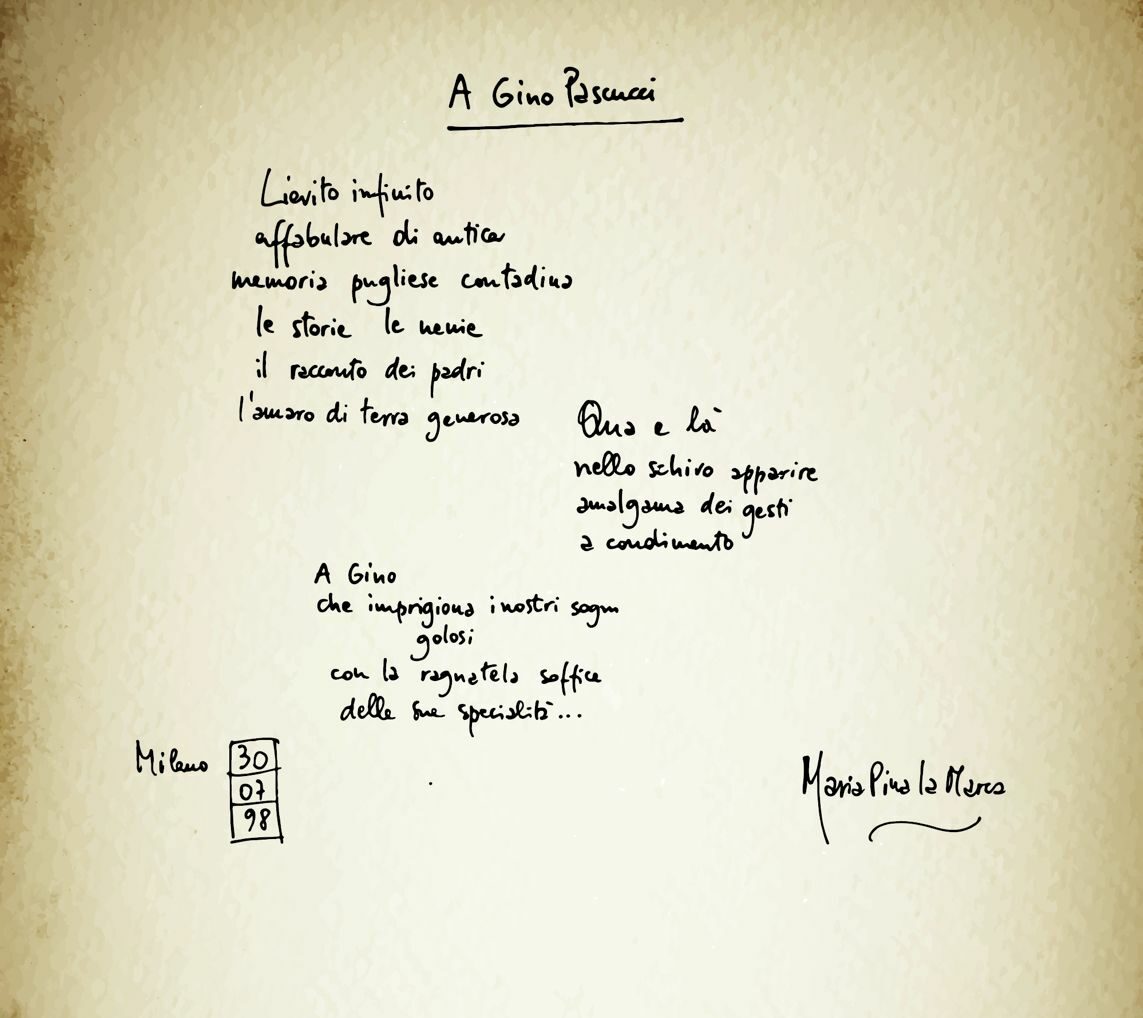 A Gino Pascucci
Lievito infinito
affabulare di antica
memoria pugliese contadina
le storie le nenie
il racconto dei padri
l'amaro di terra generosa
Qua e là
nello schivo apparire
amalgama dei gesti
a condimento
A Gino
che imprigiona i nostri sogni
golosi
con la ragnatela soffice
delle sue specialità...
Milano 30
07
98
Maria Pina la Marca